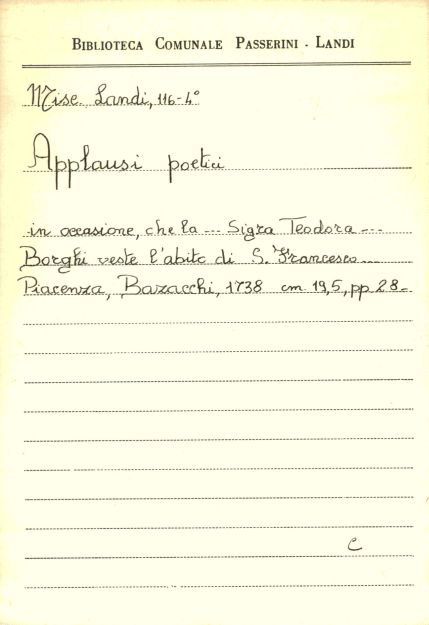 BIBLIOTECA COMUNALE PASSERINI - LANDI
Misc. Landi, 116-4°
Applausi poetici
in occasione, che la --- Sigra Teodora ---
Borghi veste l'abito di S. Francesco ---
Piacenza, Bazacchi, 1738 cm 19,5, pp 28-
C